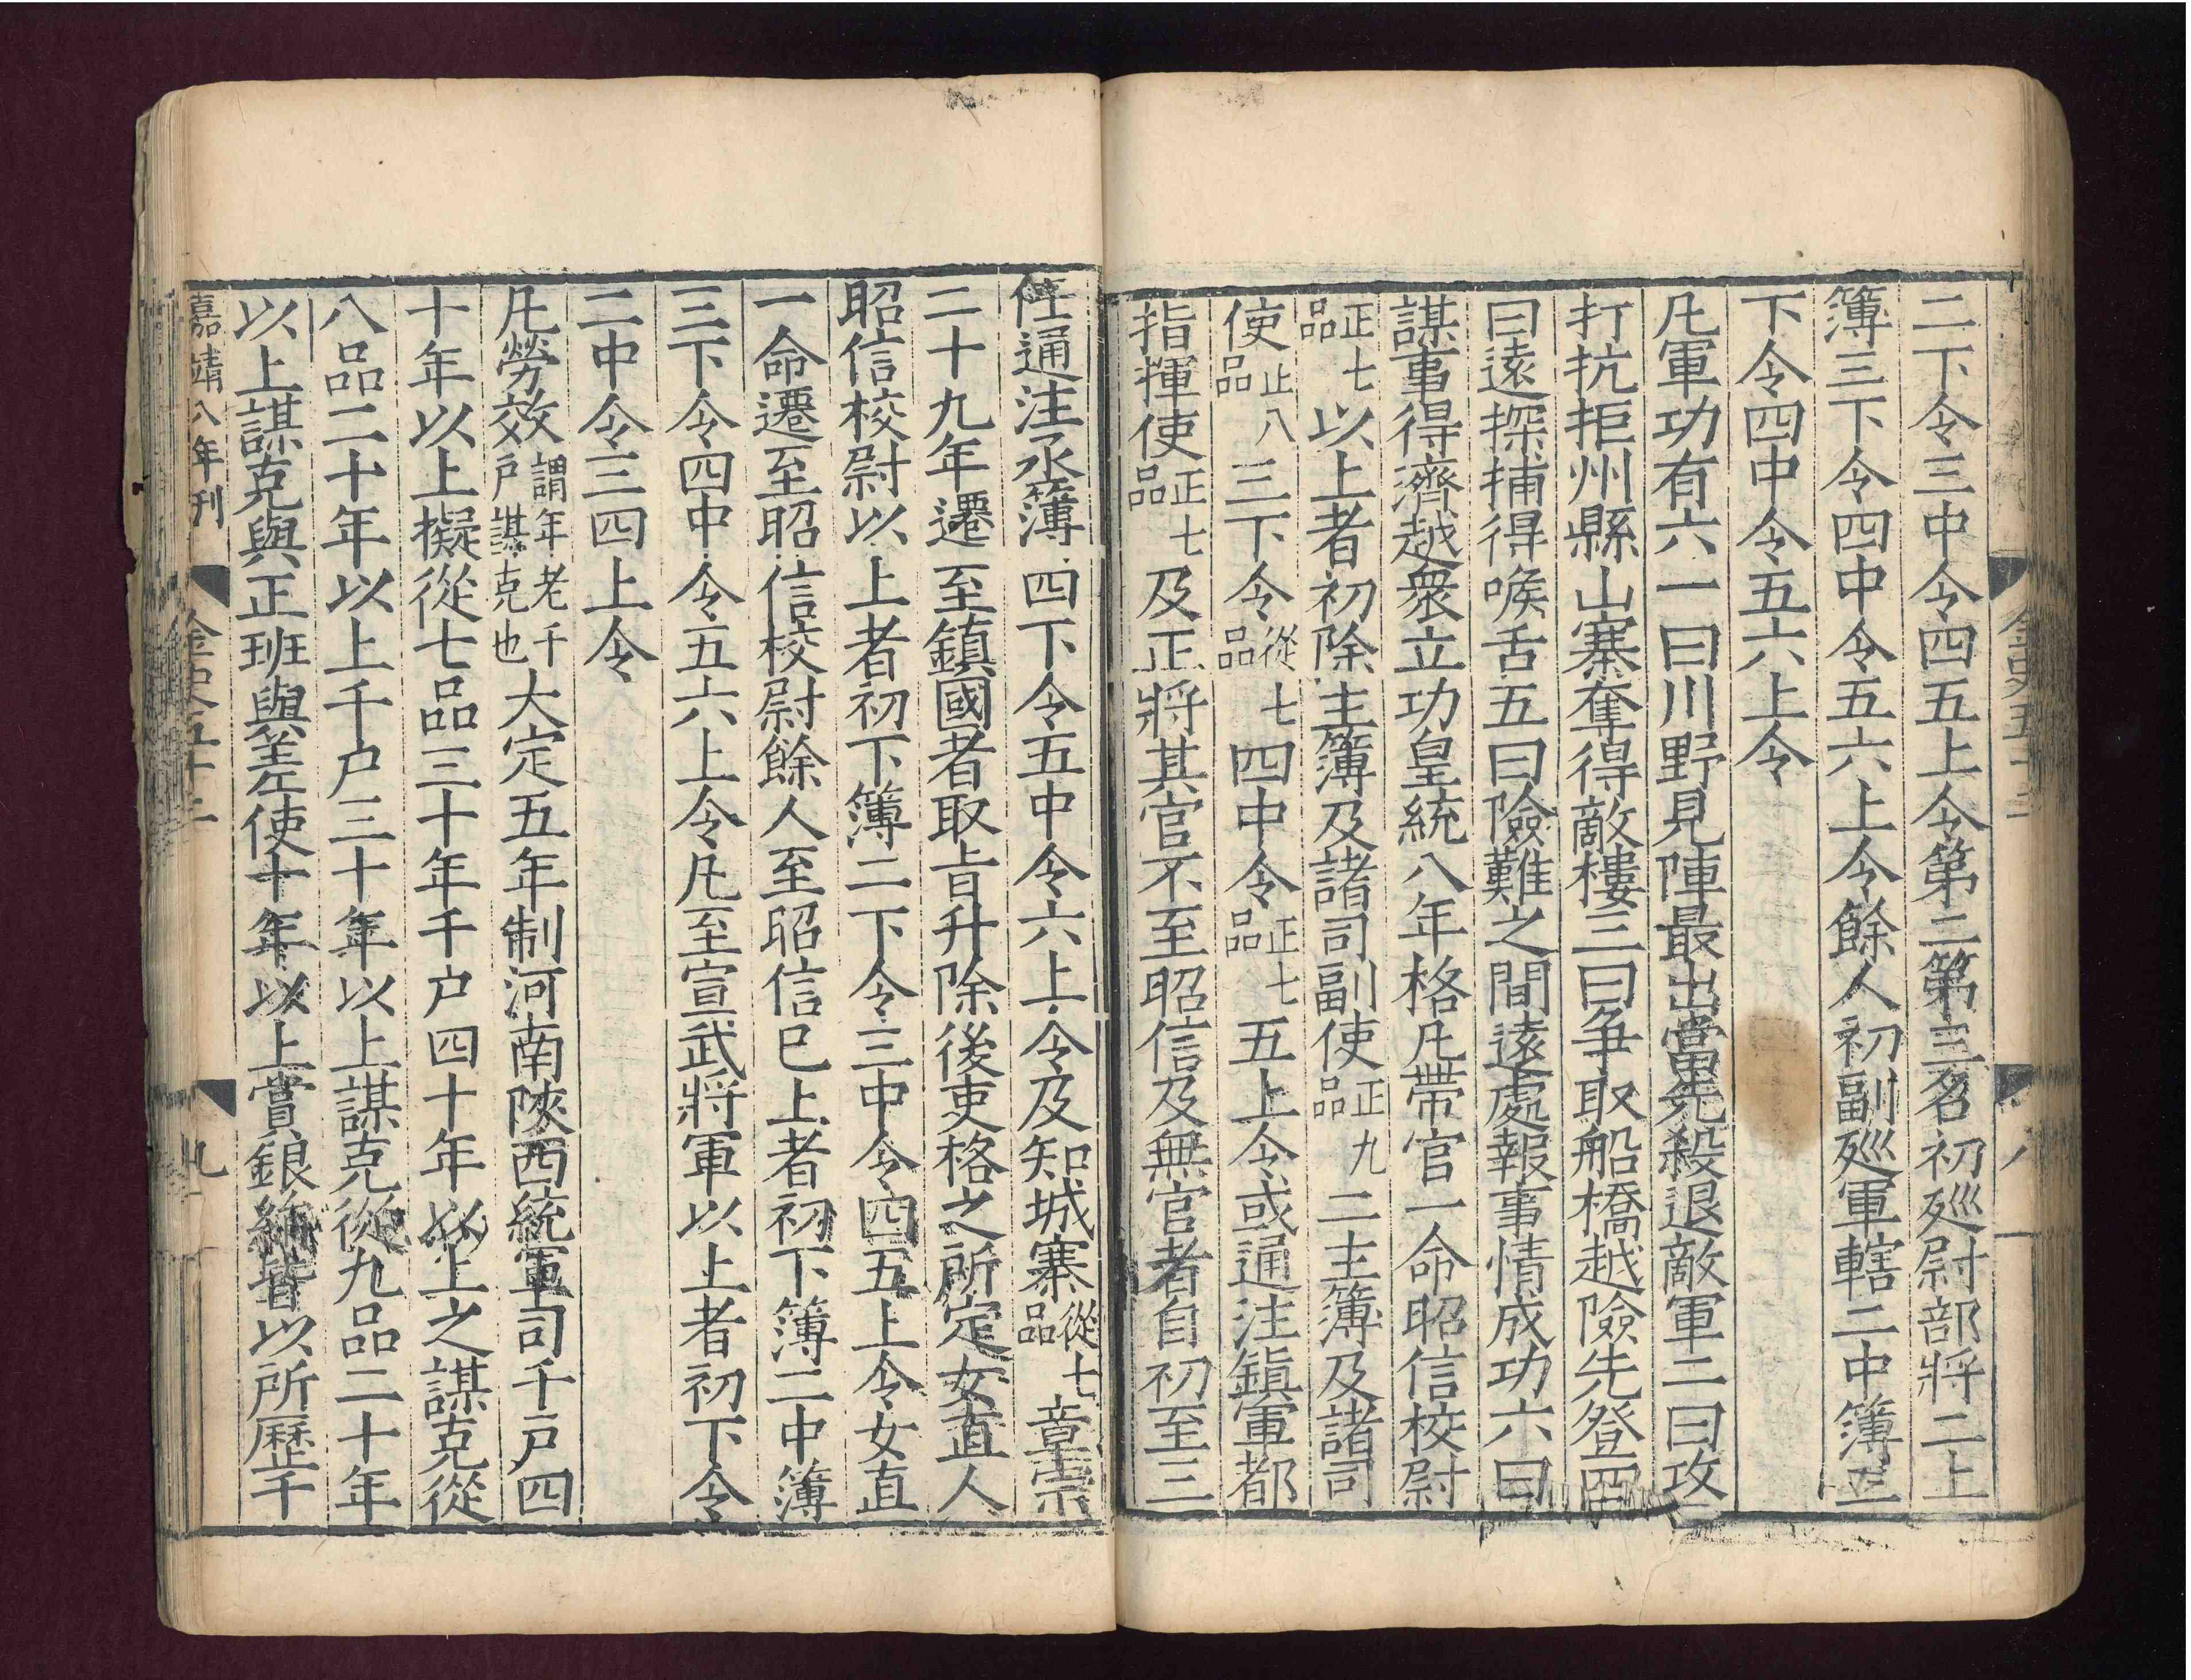 二下令三中令四五上令第二第三名初廵尉部將二上
簿三下令四中令五六上令餘人初副廵軍轄二中簿三
下令四中令五六上令
凡軍功有六一曰川野見陣最出當先殺退敵軍二曰攻
打抗拒州縣山寨奪得敵樓三曰争取船橋越險先登四
曰遠探捕得喉舌五曰險難之間遠處報事情成功六曰
謀事得濟越衆立功皇統八年格凡帶官一命昭信校尉
正七品以上者初除主簿及諸司副使正九品二主簿及諸司
使正八品三下令從七品四中令正七品五上令或通注鎮軍都
指揮使正七品及正將其官不至昭信及無官者自初至三
任通注丞簿四下令五中令六上令及知城寨從七品章宗
二十九年遷至鎮國者取旨升除後吏格之所定女直人
昭信校尉以上者初下簿二下令三中令四五上令女直
一命遷至昭信校尉餘人至昭信已上者初下簿二中簿
三下令四中令五六上令凡至宣武將軍以上者初下令
二中令三四上令
凡勞效謂年老千户謀克也大定五年制河南陝西統軍司千户四
十年以上擬從七品三十年千户四十年以上之謀克從
八品二十年以上千户三十年以上謀克從九品二十年
以上謀克與正班與差使十年以上賞銀絹皆以所歷千
嘉靖八年刊
金史五十二
九